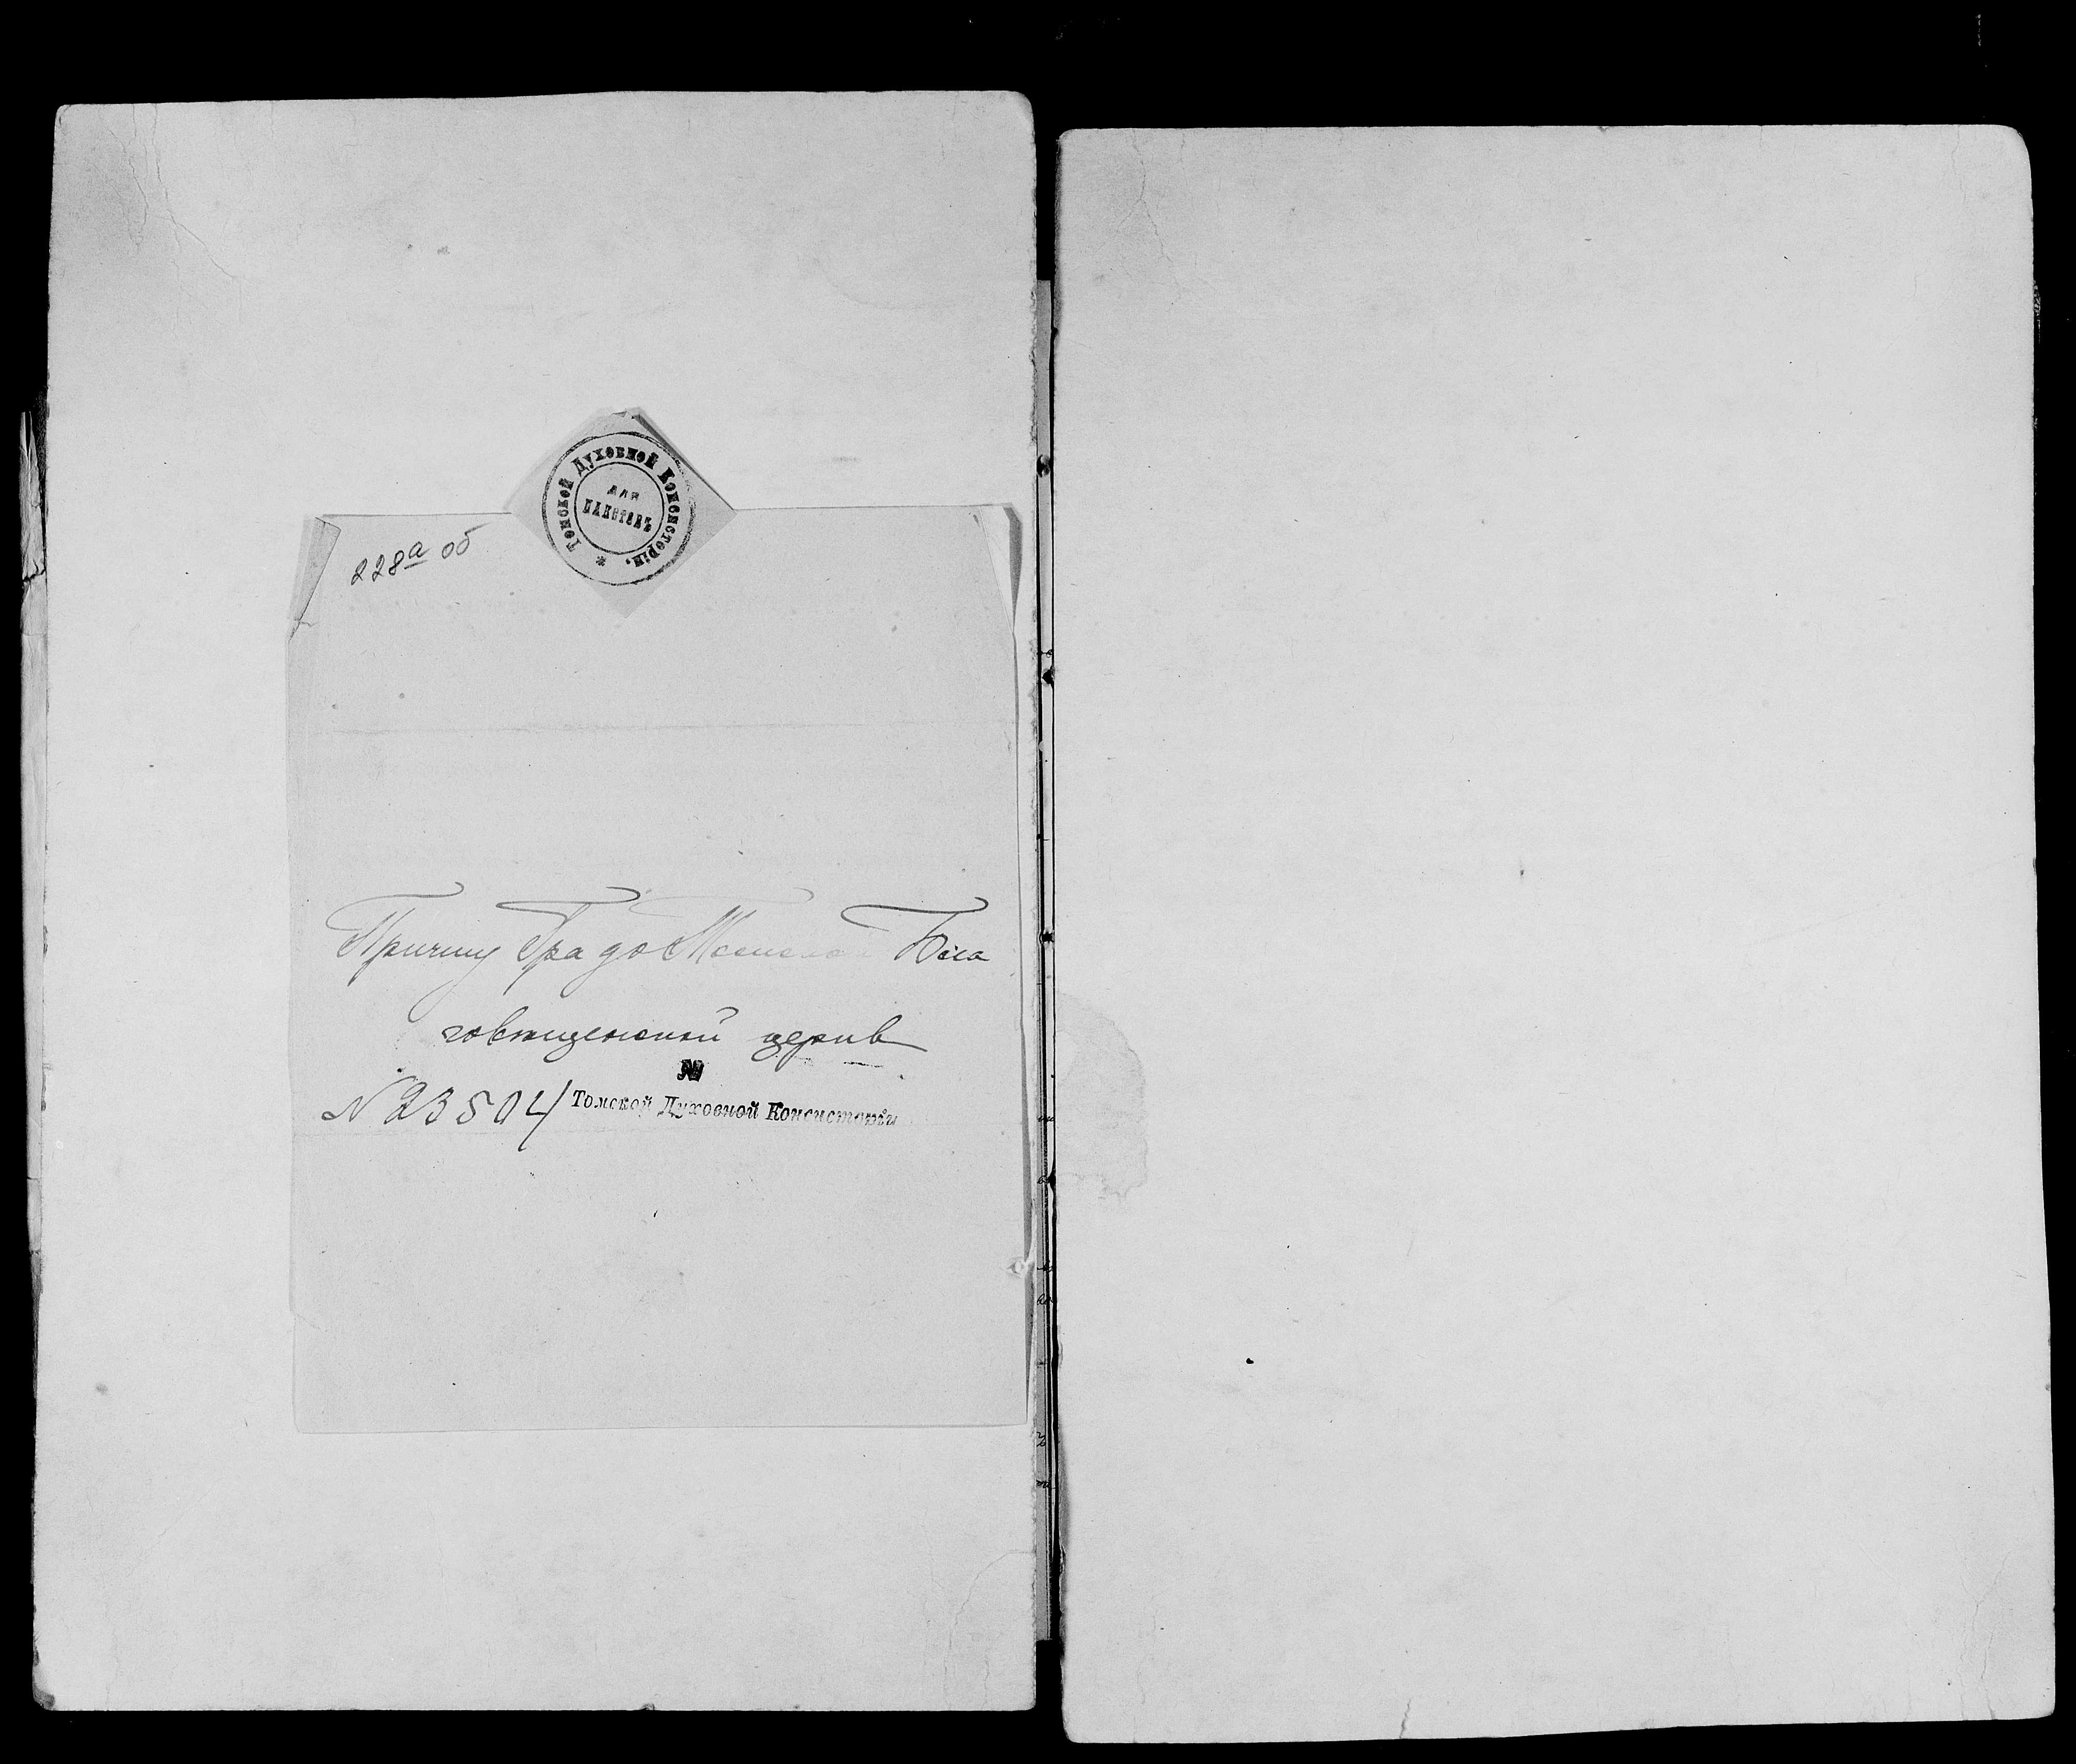 228а об
Томской Духовной Консисторіи. *
для
пакетовъ
Причту Градо Томской Бла
говѣщенской церкв
№
N 23504/ Томской Духовной Консисторіи